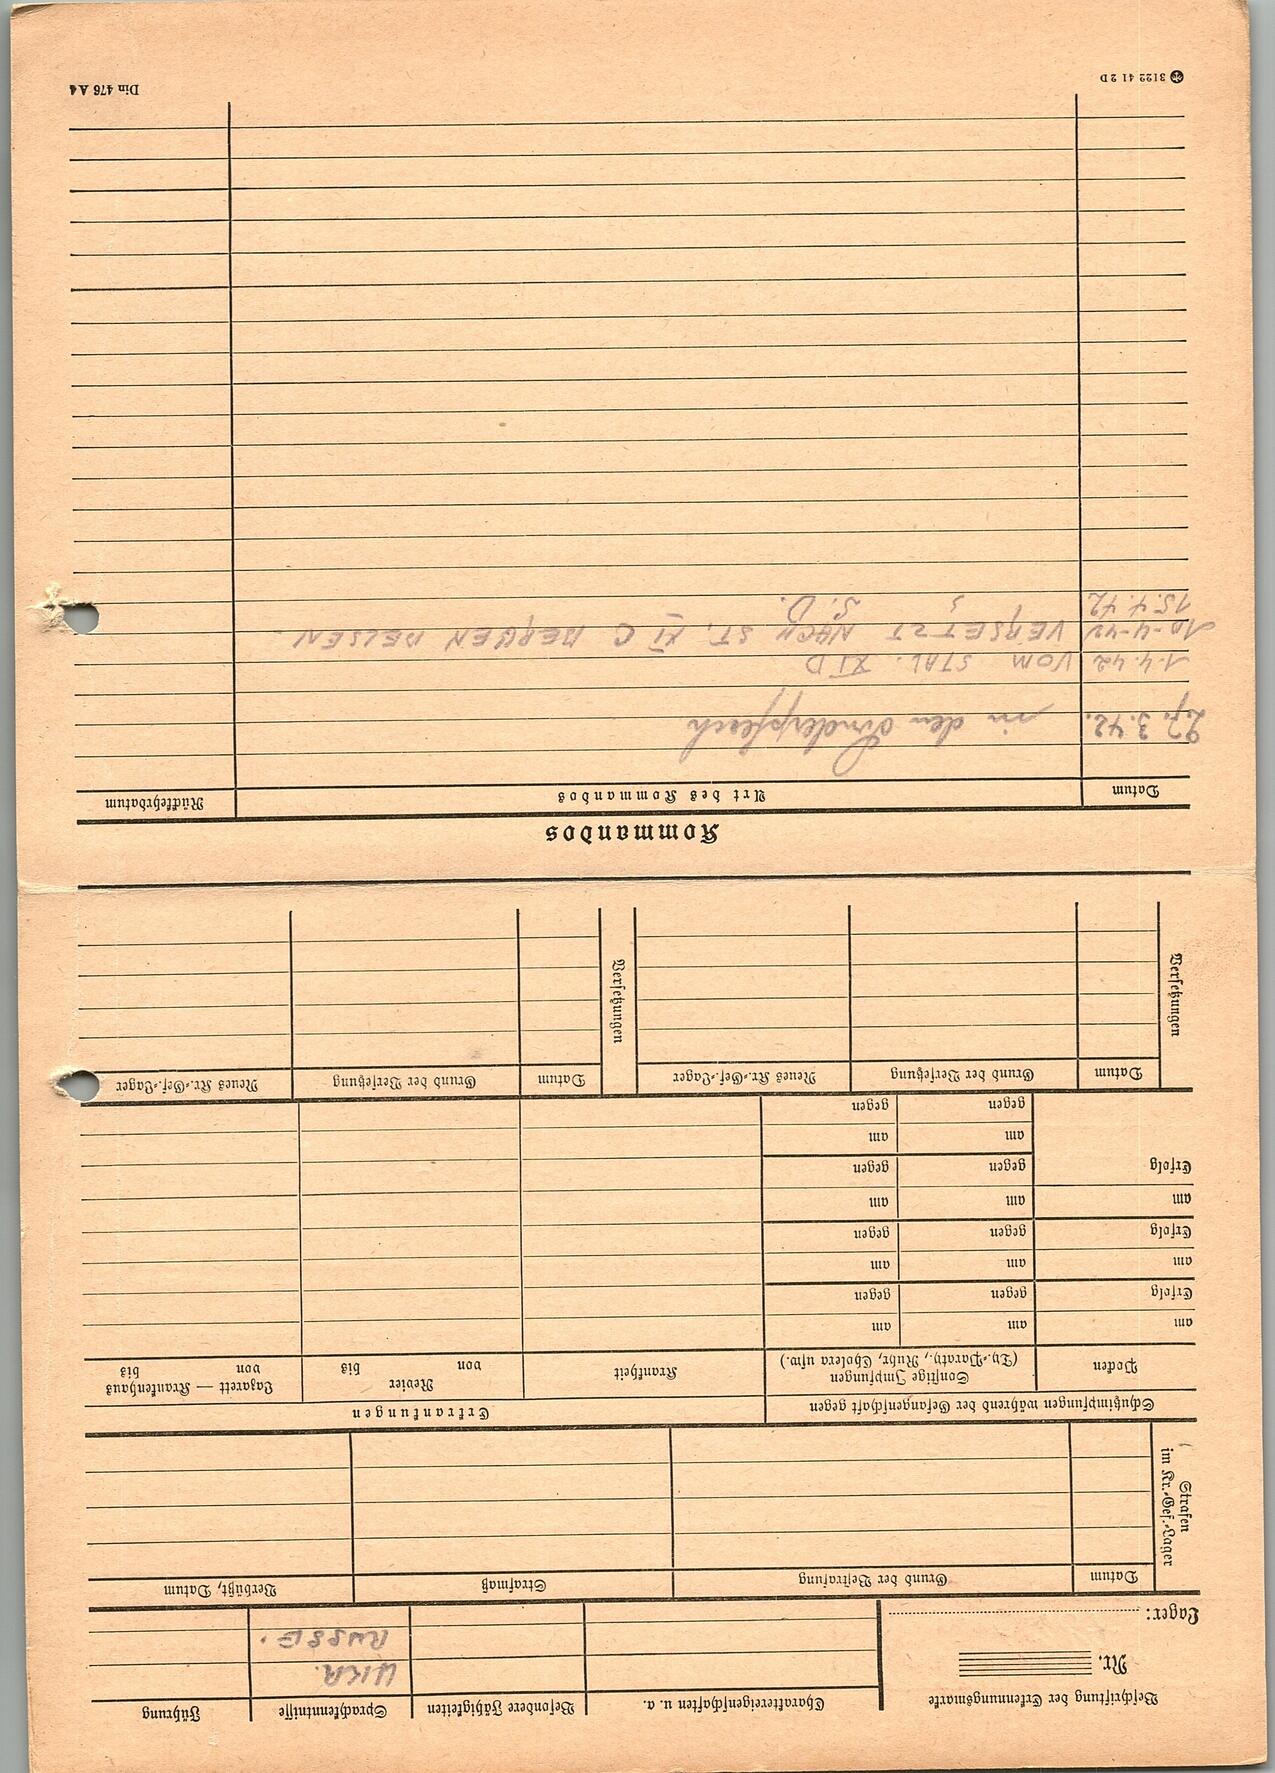 Beschriftung der Erkennungsmarke
Nr.
Lager:
Charaktereigenschaften u. a.
Besondere Fähigkeiten
Sprachkenntnisse
Führung
UKR.
RUSSE.
Strafen
im Kr.-Gef.-Lager
Datum
Grund der Bestrafung
Strafmaß
Verbüßt, Datum
Schutzimpfungen während der Gefangenschaft gegen
Erkrankungen
Pocken
Sonstige Impfungen
(Ty.-Paraty., Ruhr, Cholera usw.)
Krankheit
Revier
von bis
Lazarett — Krankenhaus
von bis
am am am
Erfolg gegen gegen
am am am
Erfolg gegen gegen
am am am
Erfolg gegen gegen
am am
gegen gegen
Versetzungen
Datum
Grund der Versetzung
Neues Kr.-Gef.-Lager
Versetzungen
Datum
Grund der Versetzung
Neues Kr.-Gef.-Lager
Kommandos
Datum
Art des Kommandos
Rückkehrdatum
27.3.42. in den
1.4.42 VOM STAL. XI D
10-4-42 VERSETZT NACH ST. XI C BERGEN BELSEN.
15.4.42 S.D.
3122 41 2 D
Din 476 A4